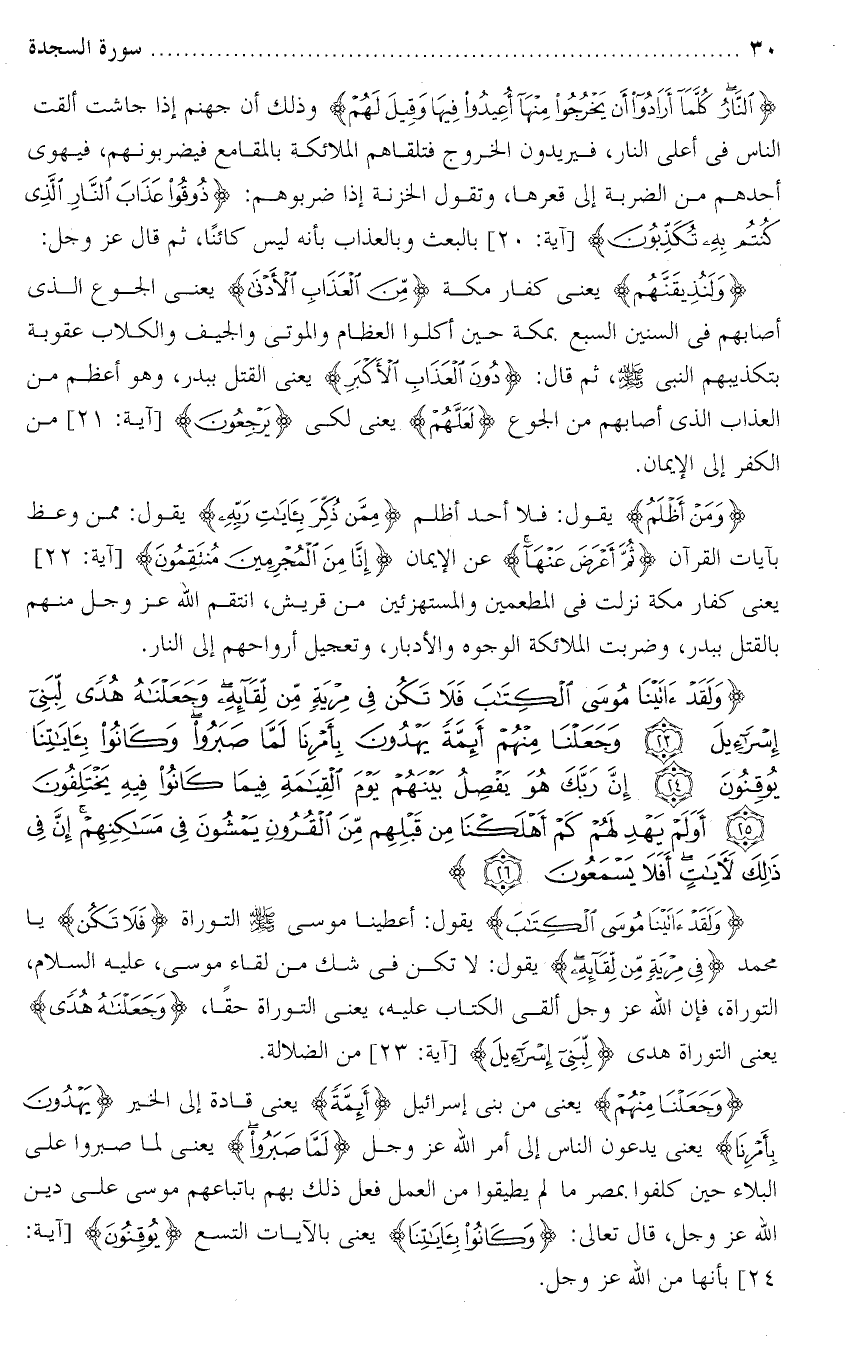 ٣٠ ........................................................................ سورة السجدة
﴿ٱلنَّارُۖ كُلَّمَآ أَرَادُوٓا۟ أَن يَخْرُجُوا۟ مِنْهَآ أُعِيدُوا۟ فِيهَا وَقِيلَ لَهُمْ﴾ وذلك أن جهنم إذا جاشت ألقت
الناس فى أعلى النار، فيريدون الخروج فتلقاهم الملائكة بالمقامع فيضربونهم، فيهوى
أحدهم من الضربة إلى قعرها، وتقول الخزنة إذا ضربوهم: ﴿ذُوقُوا۟ عَذَابَ ٱلنَّارِ ٱلَّذِى
كُنتُم بِهِۦ تُكَذِّبُونَ﴾ [آية: ٢٠] بالبعث وبالعذاب بأنه ليس كائنًا، ثم قال عز وجل:
﴿وَلَنُذِيقَنَّهُم﴾ يعنى كفار مكة ﴿مِّنَ ٱلْعَذَابِ ٱلْأَدْنَىٰ﴾ يعنى الجوع الذى
أصابهم فى السنين السبع بمكة حين أكلوا العظام والموتى والجيف والكلاب عقوبة
بتكذيبهم النبى ﷺ، ثم قال: ﴿دُونَ ٱلْعَذَابِ ٱلْأَكْبَرِ﴾ يعنى القتل ببدر، وهو أعظم من
العذاب الذى أصابهم من الجوع ﴿لَعَلَّهُمْ﴾ يعنى لكى ﴿يَرْجِعُونَ﴾ [آية: ٢١] من
الكفر إلى الإيمان.
﴿وَمَنْ أَظْلَمُ﴾ يقول: فلا أحد أظلم ﴿مِمَّن ذُكِّرَ بِـَٔايَـٰتِ رَبِّهِۦ﴾ يقول: ممن وعظ
بآيات القرآن ﴿ثُمَّ أَعْرَضَ عَنْهَآۚ﴾ عن الإيمان ﴿إِنَّا مِنَ ٱلْمُجْرِمِينَ مُنتَقِمُونَ﴾ [آية: ٢٢]
يعنى كفار مكة نزلت فى المطعمين والمستهزئين من قريش، انتقم الله عز وجل منهم
بالقتل ببدر، وضربت الملائكة الوجوه والأدبار، وتعجيل أرواحهم إلى النار.
﴿وَلَقَدْ ءَاتَيْنَا مُوسَى ٱلْكِتَـٰبَ فَلَا تَكُن فِى مِرْيَةٍ مِّن لِّقَآئِهِۦۖ وَجَعَلْنَـٰهُ هُدًى لِّبَنِىٓ
إِسْرَٰٓءِيلَ ٢٣ وَجَعَلْنَا مِنْهُمْ أَئِمَّةً يَهْدُونَ بِأَمْرِنَا لَمَّا صَبَرُوا۟ۖ وَكَانُوا۟ بِـَٔايَـٰتِنَا
يُوقِنُونَ ٢٤ إِنَّ رَبَّكَ هُوَ يَفْصِلُ بَيْنَهُمْ يَوْمَ ٱلْقِيَـٰمَةِ فِيمَا كَانُوا۟ فِيهِ يَخْتَلِفُونَ
٢٥ أَوَلَمْ يَهْدِ لَهُمْ كَمْ أَهْلَكْنَا مِن قَبْلِهِم مِّنَ ٱلْقُرُونِ يَمْشُونَ فِى مَسَـٰكِنِهِمْۚ إِنَّ فِى
ذَٰلِكَ لَـَٔايَـٰتٍۖ أَفَلَا يَسْمَعُونَ ٢٦ ﴾
﴿وَلَقَدْ ءَاتَيْنَا مُوسَى ٱلْكِتَـٰبَ﴾ يقول: أعطينا موسى ﷺ التوراة ﴿فَلَا تَكُن﴾ يا
محمد ﴿فِى مِرْيَةٍ مِّن لِّقَآئِهِۦۖ﴾ يقول: لا تكن فى شك من لقاء موسى، عليه السلام،
التوراة، فإن الله عز وجل ألقى الكتاب عليه، يعنى التوراة حقًا، ﴿وَجَعَلْنَـٰهُ هُدًى﴾
يعنى التوراة هدى ﴿لِّبَنِىٓ إِسْرَٰٓءِيلَ﴾ [آية: ٢٣] من الضلالة.
﴿وَجَعَلْنَا مِنْهُمْ﴾ يعنى من بنى إسرائيل ﴿أَئِمَّةً﴾ يعنى قادة إلى الخير ﴿يَهْدُونَ
بِأَمْرِنَا﴾ يعنى يدعون الناس إلى أمر الله عز وجل ﴿لَمَّا صَبَرُوا۟ۖ﴾ يعنى لما صبروا على
البلاء حين كلفوا بمصر ما لم يطيقوا من العمل فعل ذلك بهم باتباعهم موسى على دين
الله عز وجل، قال تعالى: ﴿وَكَانُوا۟ بِـَٔايَـٰتِنَا﴾ يعنى بالآيات التسع ﴿يُوقِنُونَ﴾ [آية:
٢٤] بأنها من الله عز وجل.